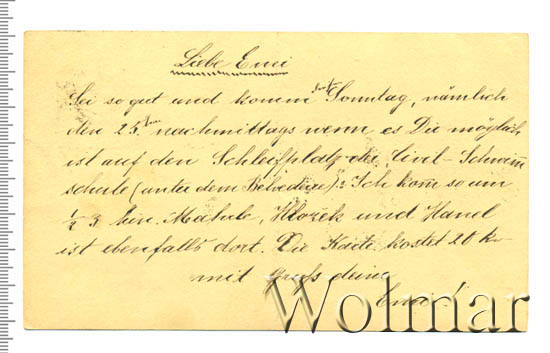 Liebe Emi
Sei so gut und komm dort Sonntag, nämlich
den 25ten nachmittags wenn es Dir möglich
ist auf den Schleifplatz der Civil-Schwimm
schule (unter dem Belvedere)? Ich kom̄ so um
½ 3 hin. Mahule, und Hanel
ist ebenfalls dort. Die Karte kostet 20 kr
mit Gruß deine
Wolmar